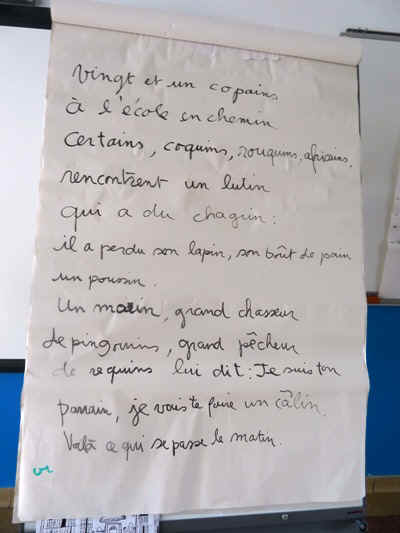 Vingt et un copains
à l'école en chemin
Certains, coquins, rouquins, africains,
rencontrent un lutin
qui a du chagrin :
il a perdu son lapin, son bout de pain
un poussin.
Un marin, grand chasseur
de pingouins, grand pêcheur
de requins lui dit : Je suis ton
parrain, je vais te faire un câlin.
Voilà ce qui se passe le matin.